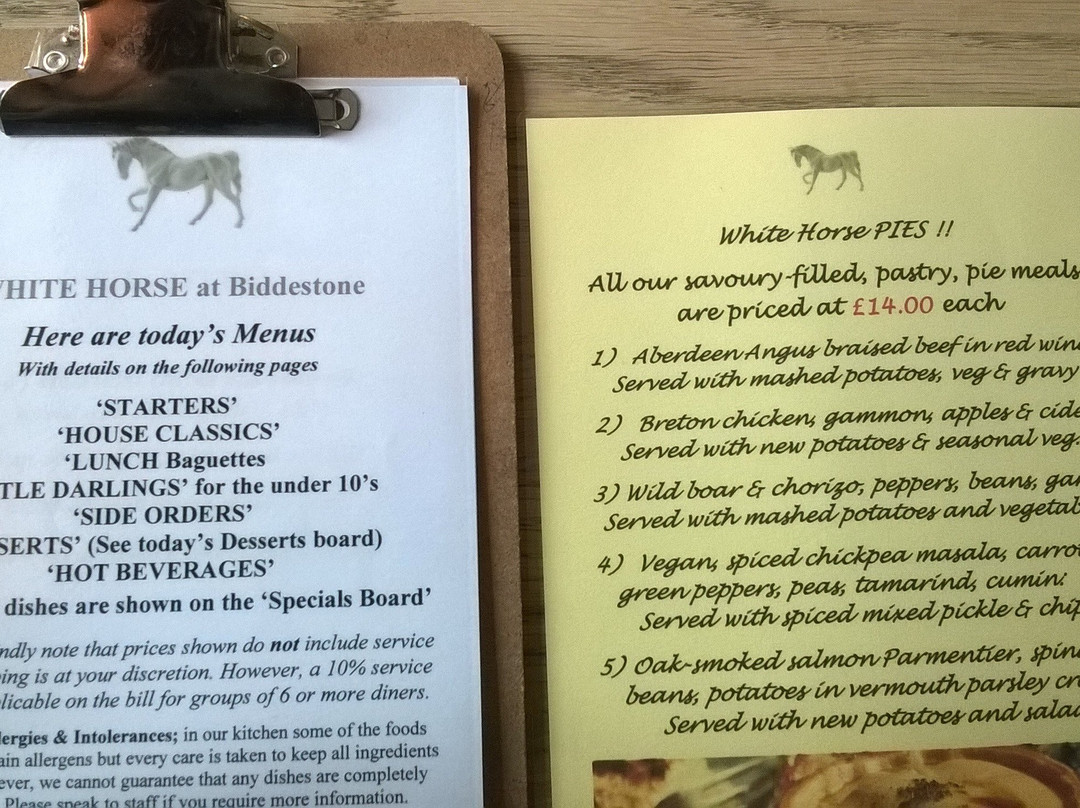 WHITE HORSE at Biddestone
Here are today's Menus
With details on the following pages
'STARTERS'
'HOUSE CLASSICS'
'LUNCH Baguettes
TLE DARLINGS' for the under 10's
'SIDE ORDERS'
SERTS' (See today's Desserts board)
'HOT BEVERAGES'
dishes are shown on the 'Specials Board'
ndly note that prices shown do not include service
ing is at your discretion. However, a 10% service
licable on the bill for groups of 6 or more diners.
lergies & Intolerances; in our kitchen some of the foods
ain allergens but every care is taken to keep all ingredients
ever, we cannot guarantee that any dishes are completely
Please speak to staff if you require more information.
White Horse PIES !!
All our savoury-filled, pastry, pie meals
are priced at £14.00 each
1) Aberdeen Angus braised beef in red win
Served with mashed potatoes, veg & gravy
2) Breton chicken, gammon, apples & cide
Served with new potatoes & seasonal veg.
3) Wild boar & chorizo, peppers, beans, gar
Served with mashed potatoes and vegetab
4) Vegan, spiced chickpea masala, carrot
green peppers, peas, tamarind, cumin:
Served with spiced mixed pickle & chip
5) Oak-smoked salmon Parmentier, spin
beans, potatoes in vermouth parsley cr
Served with new potatoes and salad